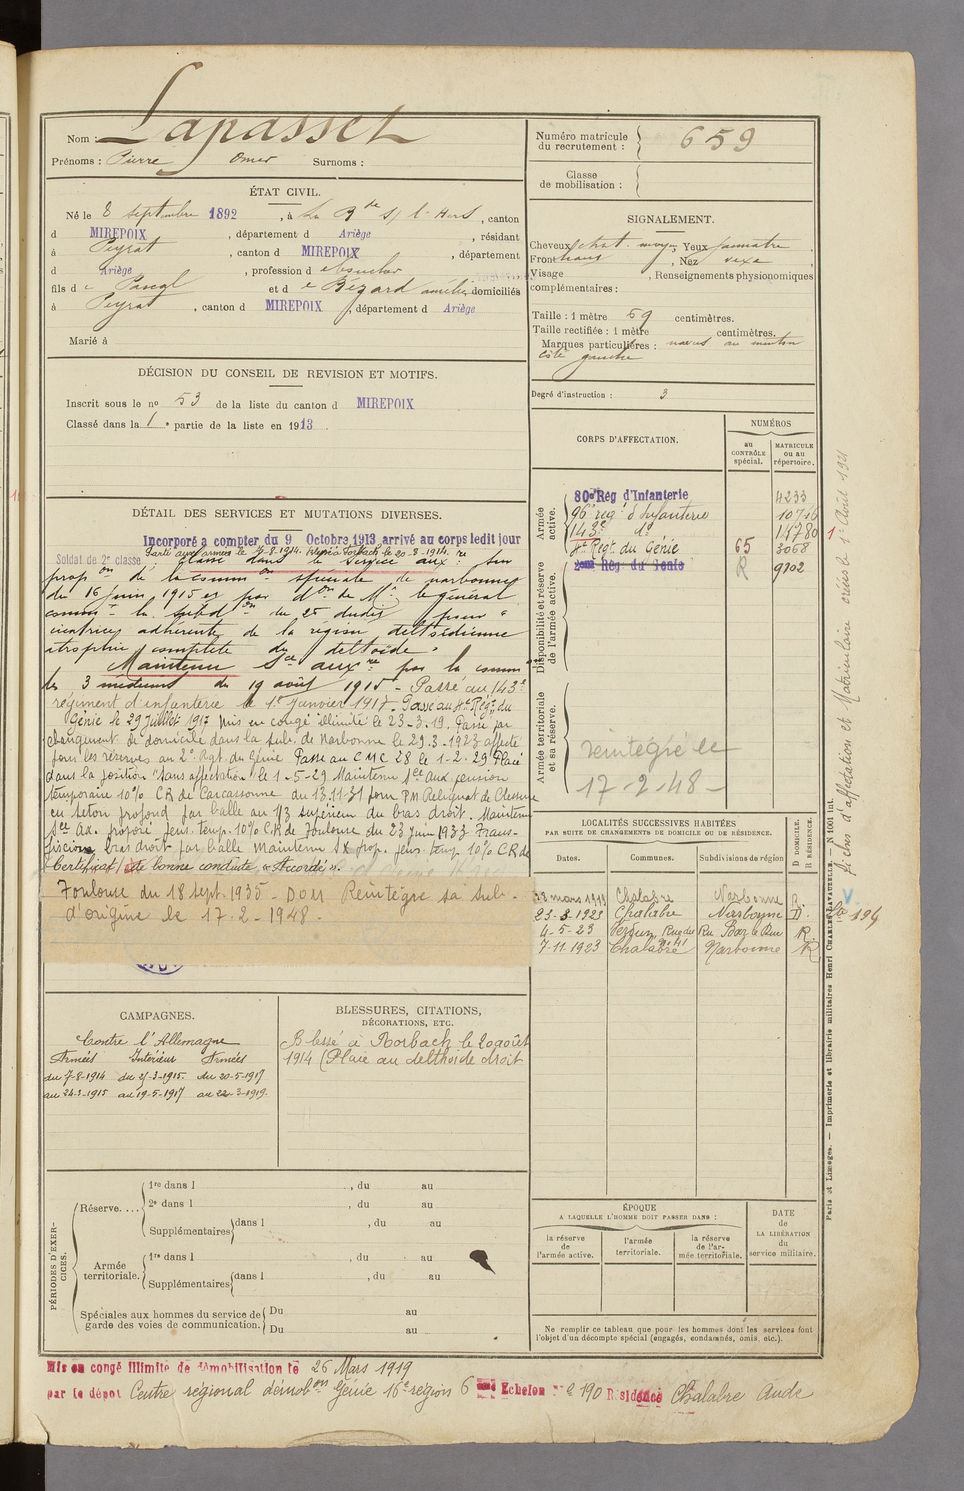 Nom : Lapasset
Prénoms : Pierre Omer Surnoms :
ÉTAT CIVIL.
Né le 8 septembre 1892, à La Bde s/ l'Hers, canton
d MIREPOIX, département d Ariège, résidant
à Peyrat, canton d MIREPOIX, département
d Ariège, profession d
fils d e Pascal et d e Bézard Amélie domiciliés
à Peyrat, canton d MIREPOIX, département d Ariège
Marié à
DÉCISION DU CONSEIL DE REVISION ET MOTIFS.
Inscrit sous le no 53 de la liste du canton d MIREPOIX
Classé dans la 1e partie de la liste en 1913.
DÉTAIL DES SERVICES ET MUTATIONS DIVERSES.
Incorporé a compter du 9 Octobre 1913 arrivé au corps ledit jour
Parti aux armées le 7-8-1914. Blessé Rorbach le 20-8-1914.
Soldat de 2e classe. Classé dans le service auxre sur
propon de la common spéciale de Narbonne
du 16 juin 1915 et par don de Mr le général
commt la subdon du 25 dudit pour "
cicatrices adhérentes de la région deltoïdienne
atrophie complète du deltoïde"
Maintenu Sce auxre par la common
des 3 médecins du 19 août 1915 - Passé au 143e
régiment d'infanterie le 1er Janvier 1917. Passé au 4e Régt du
Génie le 29 Juillet 1917 Mis en congé illimité le 23-3-19. Passé par
changement de domicile dans la sub. de Narbonne le 29.3-1923 affecté
pour les réserves au 2e Rgt du Génie Passé au CMC 28 le 1-2.29 Placé
dans la position "sans affectation" le 1-5-29 Maintenu Sce Aux pension
temporaire 10% CR de Carcassonne du 13.11-31 pour P.M Reliquat de blessure
en seton profond par balle au 1/3 supérieur du bras droit. Maintenu
Sce Ax. proposé pens. temp. 10% C.R de Toulouse du 23 Juin 1933 Trans-
fixion bras droit par balle Maintenu SX prop. pens. temp 10% C.R de
Certificat de bonne conduite "Accordé".
Toulouse du 18 sept. 1935 - DOM Réintègre sa sub.
d'origine le 17-2-1948.
CAMPAGNES.
Contre l'Allemagne
Armées Intérieur Armées
du 7-8-1914 du 25-3-1915. du 20-5-1917
au 24-3-1915 au 19-5-1917 au 22-3-1919.
BLESSURES, CITATIONS,
DÉCORATIONS, ETC.
Blessé à Rorbach le 20 août
1914 (Plaie au delthoïde droit
PÉRIODES D'EXERCICES.
Réserve....
1re dans l , du au
2e dans l , du au
Supplémentaires dans l , du au
Armée territoriale.
1re dans l , du au
Supplémentaires dans l , du au
Spéciales aux hommes du service de garde des voies de communication.
Du au
Du au
Numéro matricule du recrutement : 659
Classe de mobilisation :
SIGNALEMENT.
Cheveux chat. moyen, Yeux jaunâtre.
Front haut, Nez vexe,
Visage , Renseignements physionomiques
complémentaires :
Taille : 1 mètre 59 centimètres.
Taille rectifiée : 1 mètre centimètres.
Marques particulières : naevus au menton
côté gauche
Degré d'instruction : 3
CORPS D'AFFECTATION.
NUMÉROS
au CONTRÔLE spécial.
MATRICULE ou au répertoire.
Armée active.
80e Rég d'Infanterie 4233
96e régt d'Infanterie 10716
143e do 14780
4e Régt du Génie 65 3068
2eme Rég du Génie R 9802
Disponibilité et réserve de l'armée active.
Armée territoriale et sa réserve.
réintégré le
17-2-48-
LOCALITÉS SUCCESSIVES HABITÉES
PAR SUITE DE CHANGEMENTS DE DOMICILE OU DE RÉSIDENCE.
Dates. Communes. Subdivisions de région D DOMICILE. R RÉSIDENCE.
23 mars 1919 Chalabre Narbonne R.
23-3-1923 Chalabre Narbonne D.
4-5-23 Verdun, Rue du Ru Bar le Duc R.
7-11-1923 Chalabre Narbonne R
ÉPOQUE
A LAQUELLE L'HOMME DOIT PASSER DANS :
la réserve de l'armée active.
l'armée territoriale.
la réserve de l'armée territoriale.
DATE de LA LIBÉRATION du service militaire.
Ne remplir ce tableau que pour les hommes dont les services font
l'objet d'un décompte spécial (engagés, condamnés, omis, etc.).
Fiches d'affectation et Matriculaire créées le 1er Août 1921
194
Paris et Limoges. — Imprimerie et librairie militaires Henri CHARLES-LAVAUZELLE. — N 1001 Int.
Mis en congé illimité de démobilisation le 26 Mars 1919
par le dépot Centre régional démobon Génie 16e région 6 ème Echelon No 190 Résidence Chalabre Aude